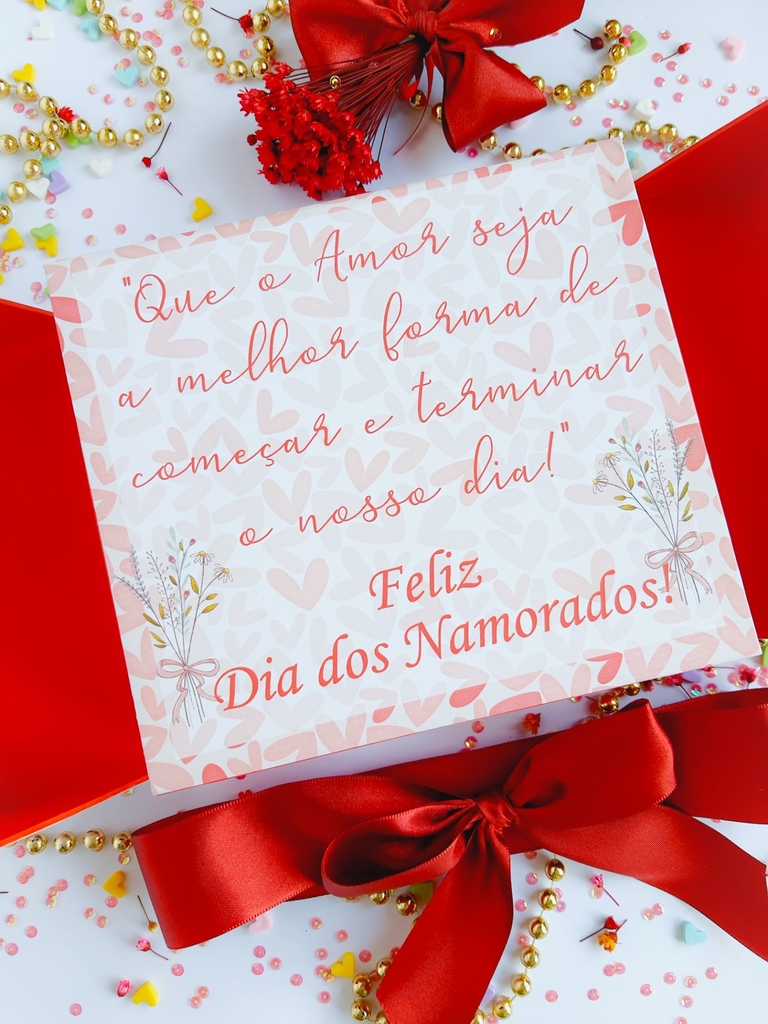 "Que o Amor seja
a melhor forma de
começar e terminar
o nosso dia!"
Feliz
Dia dos Namorados!